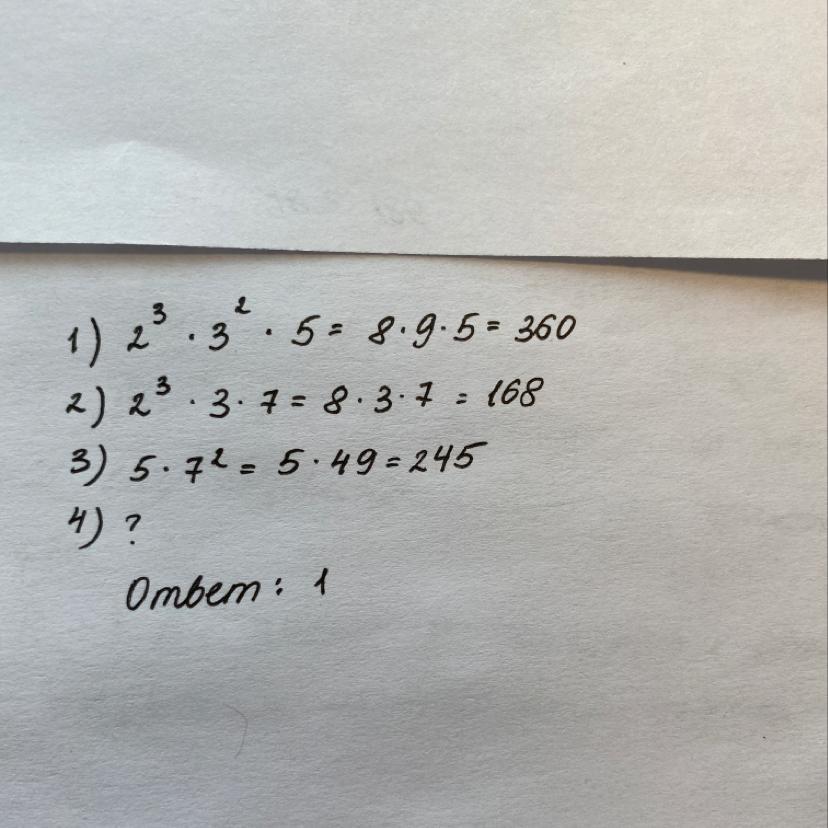 1) 2³ · 3² · 5 = 8 · 9 · 5 = 360
2) 2³ · 3 · 7 = 8 · 3 · 7 = 168
3) 5 · 7² = 5 · 49 = 245
4) ?
Ответ: 1